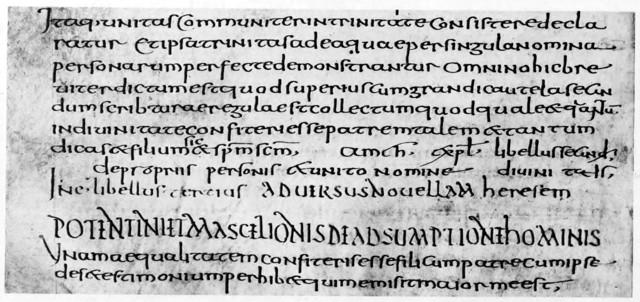 Itaq; unitas communiter in trinitate consistere decla
ratur et ipsa trinitas adeaquae persingula nomina
personarum perfecte demonstrantur omnino hic bre
uiter dictum est quod superius cum grandi cautela secun
dum scripturae regula est collectum quod quale & q̄tum
in diuinitate confiteri esse patrem talem & tantum
dicas & filium sic & sp̄m sc̄m, am̄. expl. libellus secund.
de propriis personis & unito nomine diuinitatis,
Inc. libellus tercius ADVERSUS NOUELLAM heresem
POTENTINI ET MASCELIONIS DE ADSUMPTIONE HOMINIS
Unam aequalitatem confiteris esse fili cum patre cum ipse
de se testimonium perhib& qui me misit maior me est,